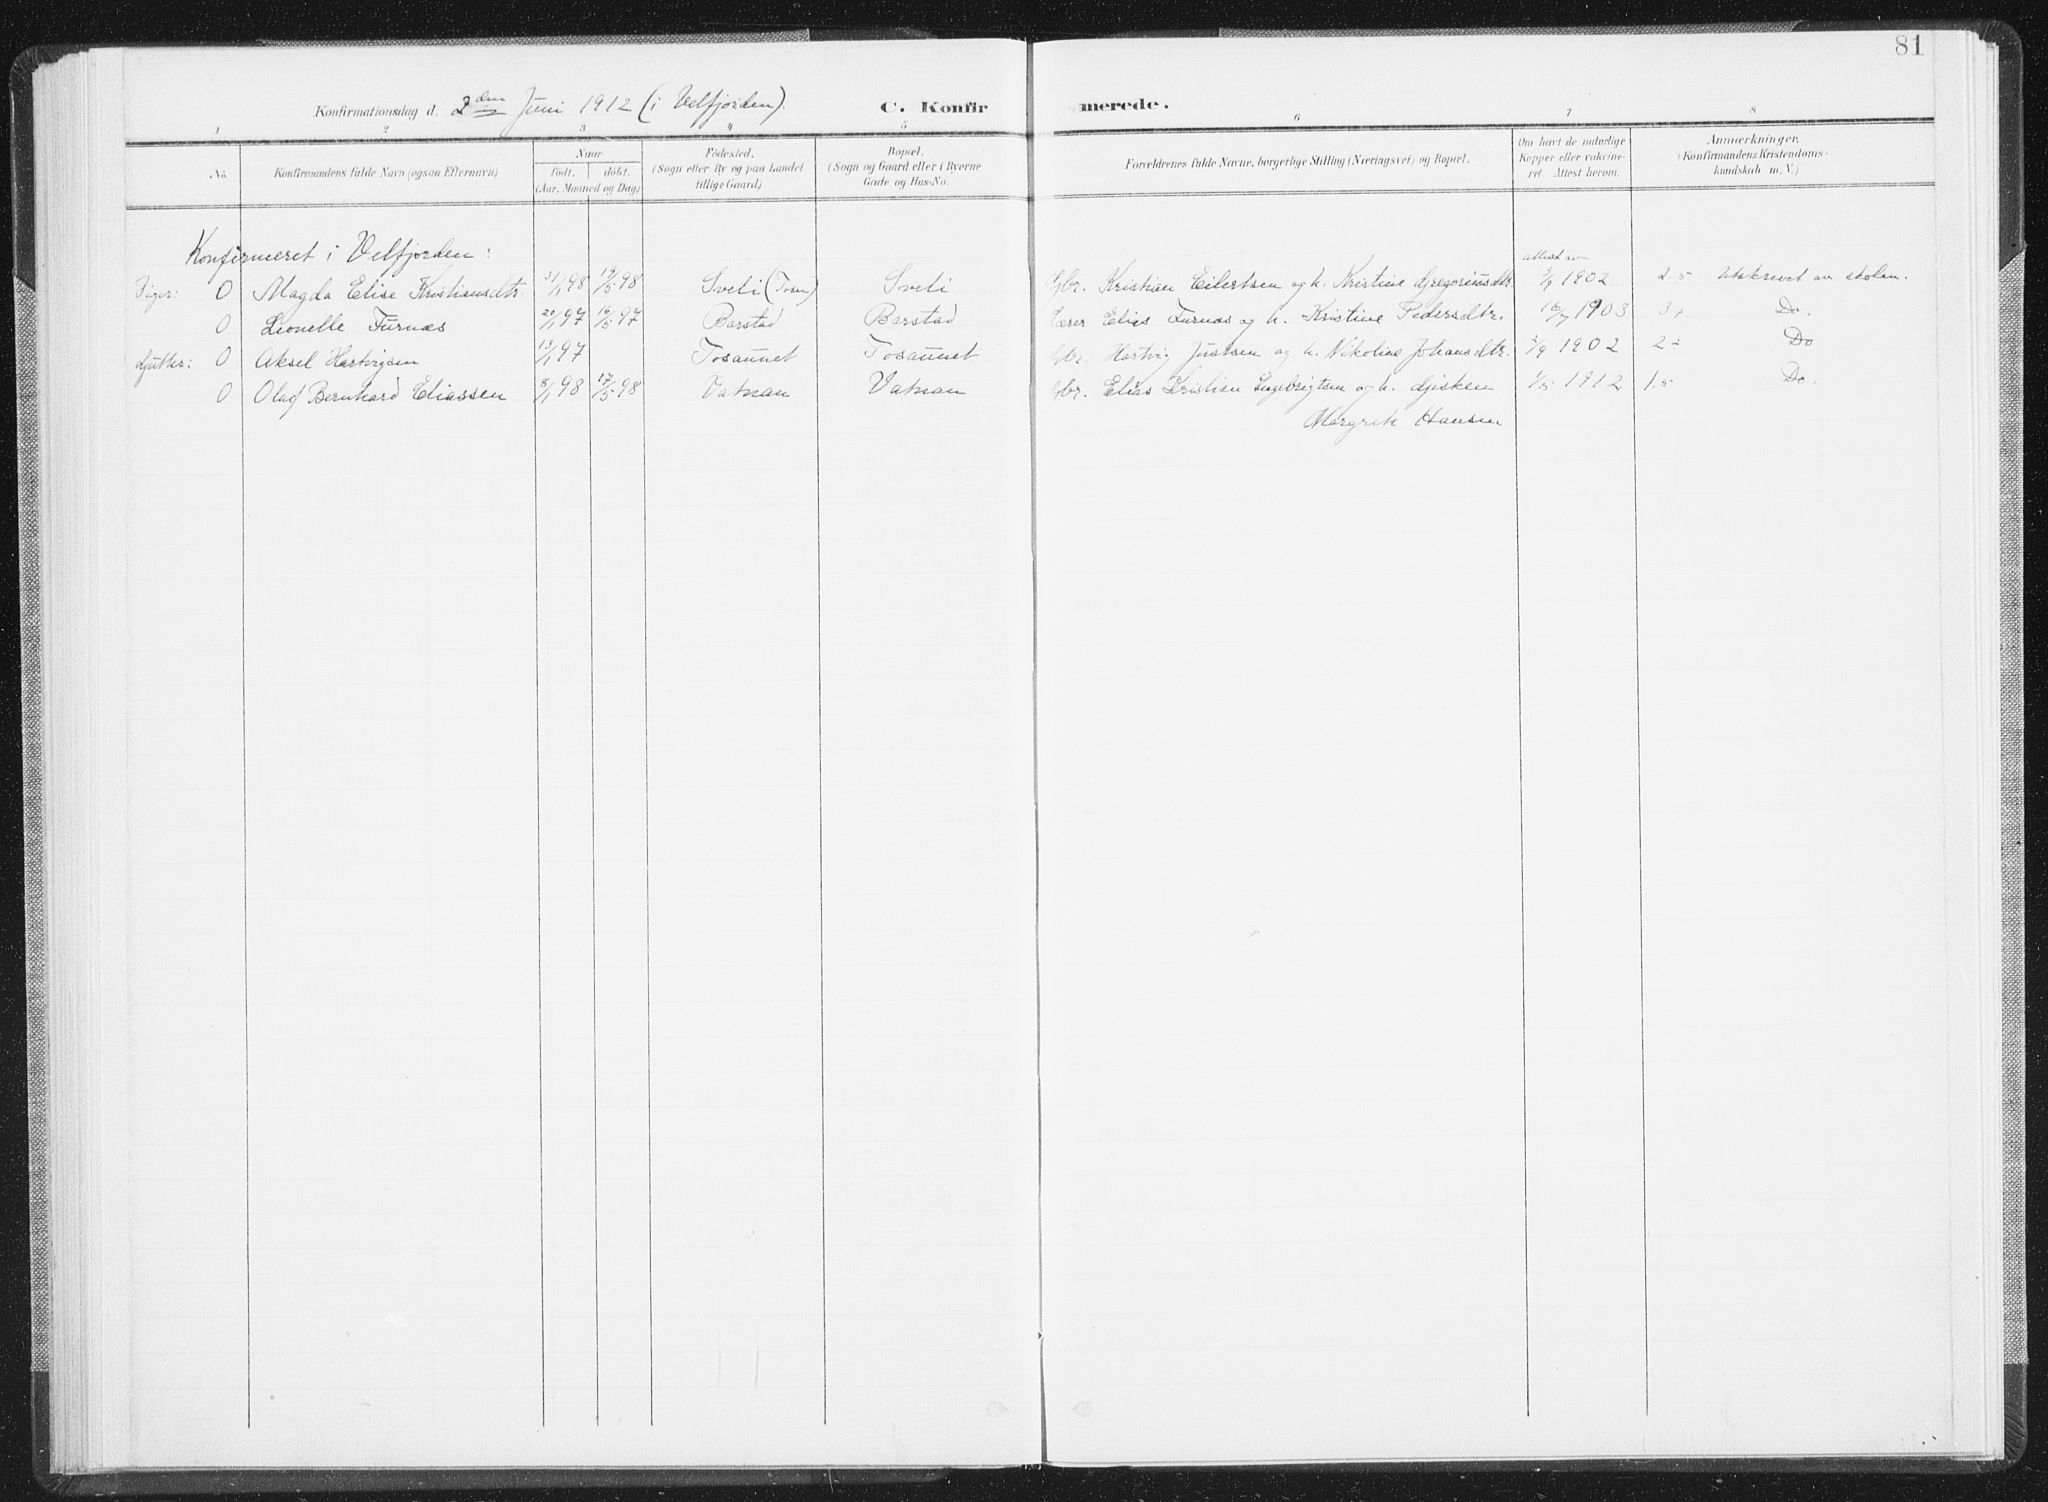 81
Konfirmationsdag d. 2den Juni 1912 (i Velfjorden). C. Konfir merede.
1 2 3 4 5 6 7 8
No.
Konfirmandens fulde Navn (ogsaa Efternavn)
Naar
født. døbt.
(Aar, Maaned og Dag)
Fødested.
(Sogn eller By og paa Landet
tillige Gaard)
Bopæl.
(Sogn og Gaard eller i Byerne
Gade og Hus-No.
Forældrenes fulde Navne, borgerlige Stilling (Næringsvei) og Bopæl.
Om havt de naturlige
Kopper eller vakcine-
ret Attest herom.
Anmærkninger,
(Konfirmandens Kristendoms-
kundskab m. V.)
Konfirmeret i Velfjorden:
attest av
Piger: 0 Magda Elise Kristiansdtr. 21/1 98 19/5 98 Sveli (Tosen) Sveli Gbr. Kristian Eilertsen og h. Kristine Gregoriusdtr. 1902 2.5 Utskrevet av skolen.
0 Leonelle Furnæs 20/1 97 16/5 97 Barstad Barstad Lærer Elias Furnæs og h. Kristine Pedersdtr. 16/7 1903 3+ Do.
Gutter: 0 Aksel Hartvigsen 13/1 97 Tosaunet Tosaunet Gbr. Hartvig Justsen og h. Nikoline Johansdtr. 2/9 1902 2÷ Do
0 Olaf Bernhard Eliassen 8/1 98 17/5 98 Vatnan Vatnan Gbr. Elias Kristian Ingebrigtsen og h. Gjisken 1/5 1912 1.5 Do.
Margrete Hansen